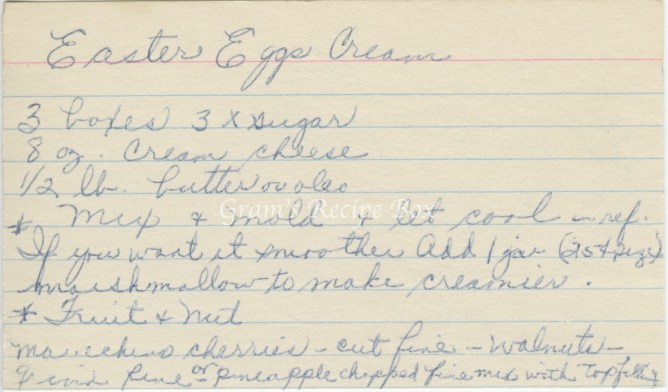 Easter Eggs Cream
3 boxes 3 X sugar
8 oz. Cream cheese
1/2 lb. butter or oleo
* Mix & mold & let cool in ref.
Gram's Recipe Box
If you want it smoother Add 1 jar (25¢ size)
marshmallow to make creamier.
* Fruit & Nut
Marichino cherries - cut fine - walnuts -
fine or pineapple chopped fine mix with top filling